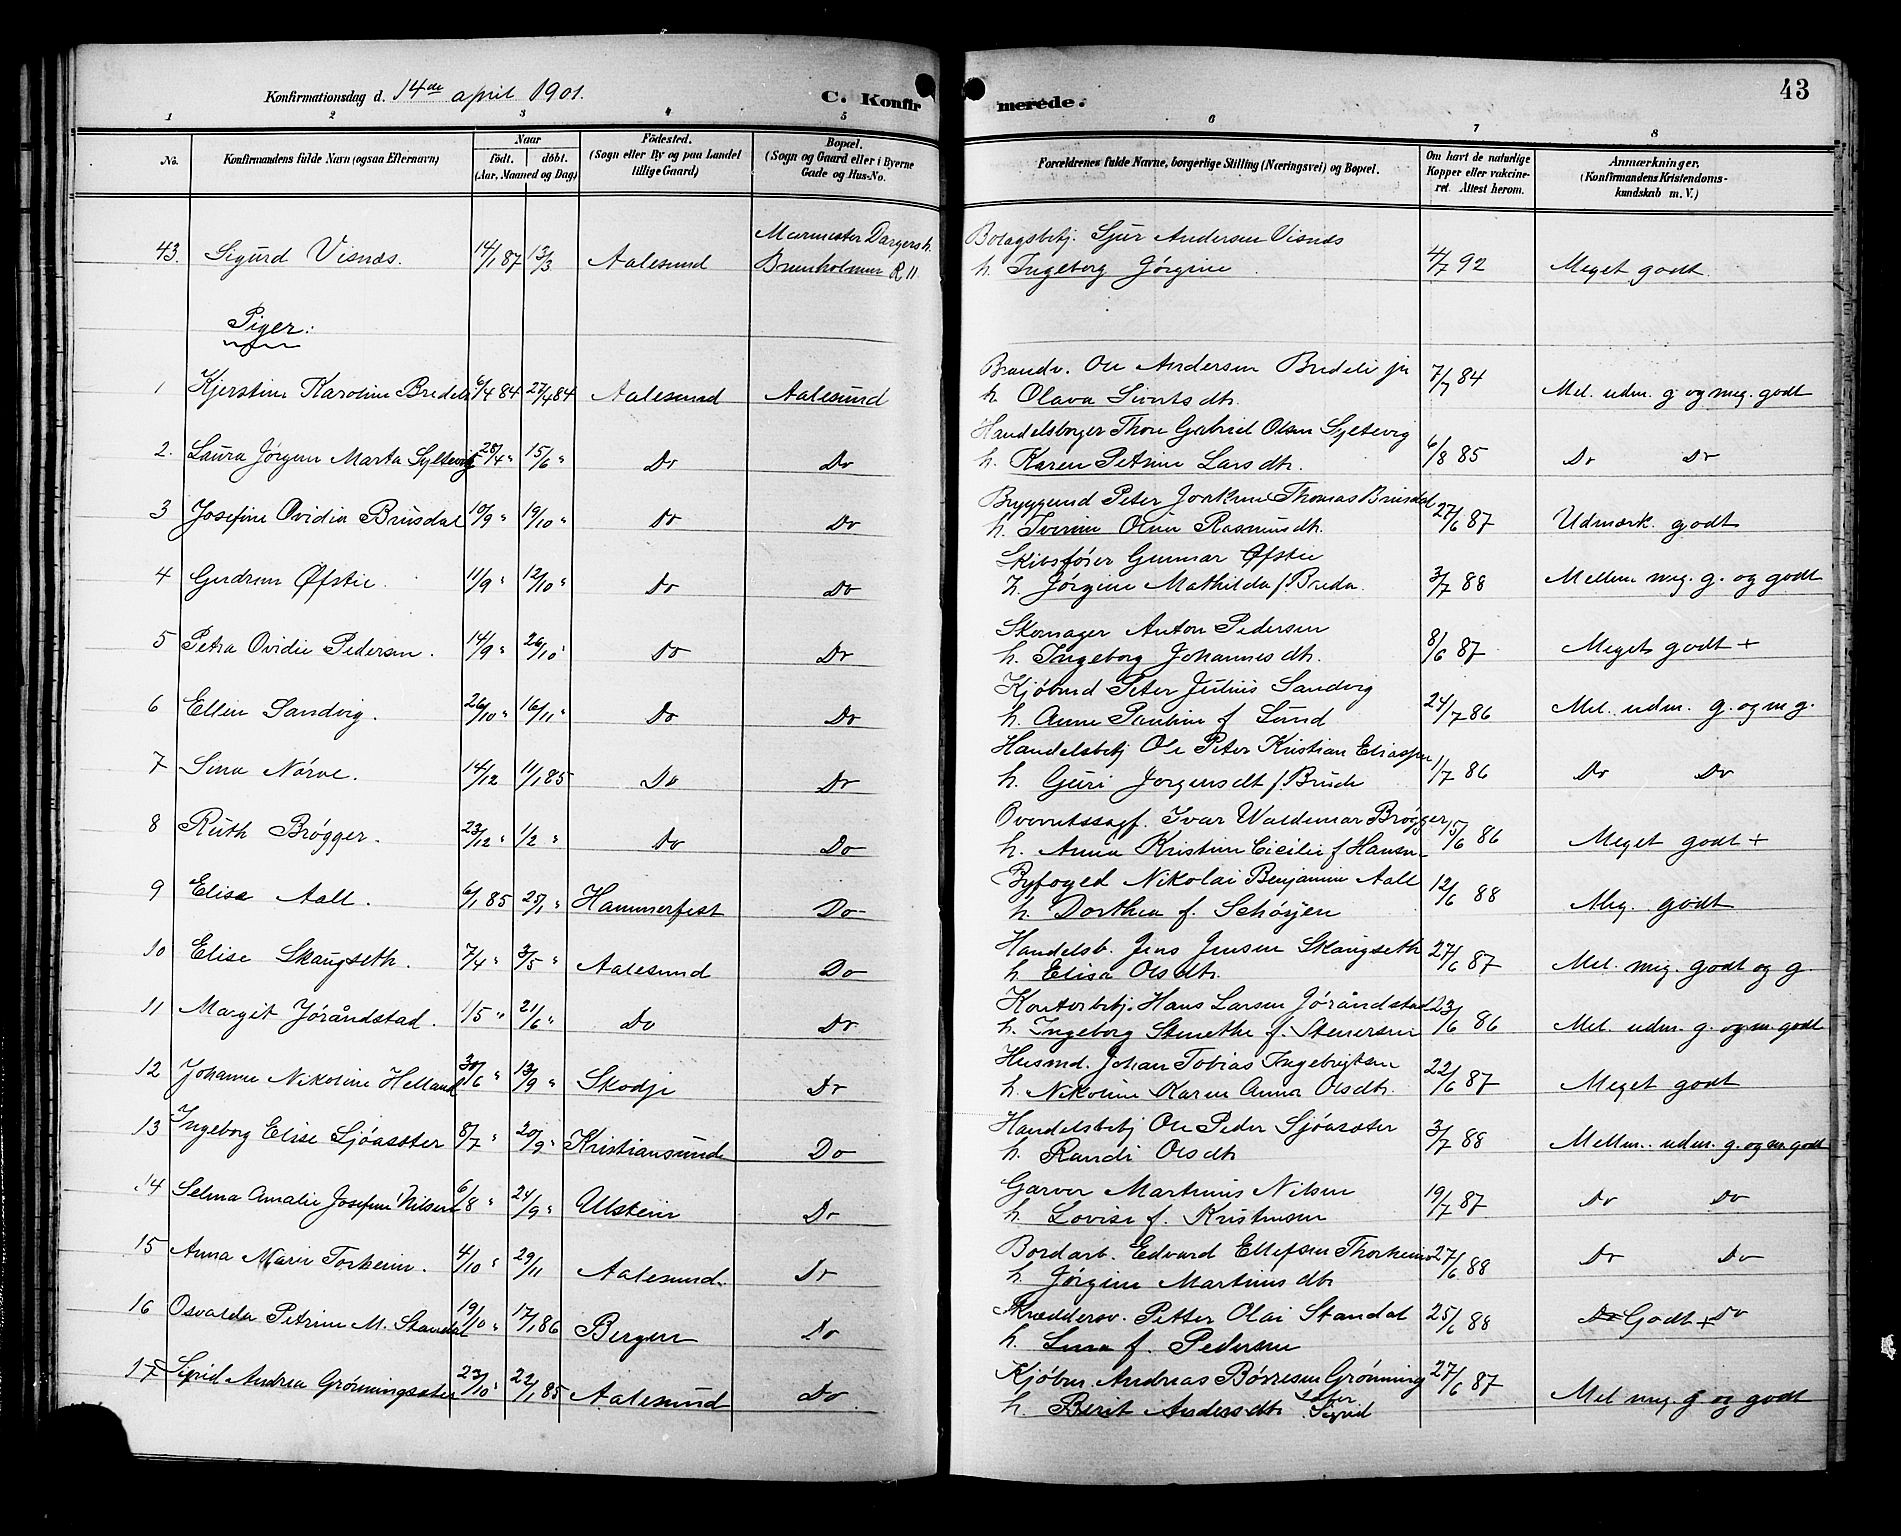 43
Konfirmationsdag d. 14de april 1901.
C. Konfirmerede.
1 2 3 4 5 6 7 8
No. Konfirmandens fulde Navn (ogsaa Efternavn) Naar født. døbt. (Aar, Maaned og Dag) Fødested. (Sogn eller By og paa Landet tillige Gaard) Bopæl. (Sogn og Gaard eller i Byerne Gade og Hus-No. Forældrenes fulde Navne, borgerlige Stilling (Næringsvei) og Bopæl. Om havt de naturlige Kopper eller vakcineret. Attest herom. Anmærkninger, (Konfirmandens Kristendomskundskab m. V.)
43. Sigurd Visnæs. 14/1 87 13/3 Aalesund Bolagsbetj. Sjur Andersen Visnæs
R 11 h. Ingeborg Jørgine 4/7 92 Meget godt.
Piger:
1 Kjerstine Karoline Bredeli 6/4 84 27/4 84 Aalesund Aalesund Brandv. Ole Andersen Bredeli jr 7/7 84 Mel. udm. g. og meg. godt
h. Olava Sivertsdtr.
2. Laura Jørgine Marta Syltevig 28/4 " 15/6 " Do Do Handelsborger Thore Gabriel Olsen Syltevig 6/8 85 Do Do
h. Karen Petrine Larsdtr.
3 Josefine Ovidia Brusdal 10/9 " 19/10 " Do Do Bryggemd Peter Joakim Thomas Brusdal 27/6 87 Udmærk. godt
h. Iverine Oline Rasmusdtr.
4 Gudrun Øfstie. 11/9 " 12/10 " Do Do Skibsfører Gunnar Øfstie 3/7 88 Mellem meg. g. og godt
h. Jørgine Mathilda f. Breda.
5 Petra Ovidie Pedersen. 14/9 " 26/10 " Do Do Skomager Anton Pedersen 8/6 87 Meget godt +
h. Ingeborg Johannesdtr.
6 Ellen Sandvig. 26/10 " 16/11 " Do Do Kjøbmd Peter Julius Sandvig 24/7 86 Mel. udm. g. og m g.
h. Anne Pauline f Lund
7 Sina Nørve. 14/12 11/1 85 Do Do Handelsbetj Ole Peter Kristian Eliassen 1/7 86 Do Do
h. Guri Jørgensdt f
8 Ruth Brøgger. 23/12 " 1/2 " Do Do Overretssagf. Ivar Waldemar Brøgger 15/6 86 Meget godt +
h. Anna Kristine Cicilie f Hansen
9 Elise Aall. 6/1 85 25/1 " Hammerfest Do Byfoged Nikolai Benjamin Aall 12/6 88 Meg. godt
h. Dorthea f. Schøyen
10 Elise Skaugseth. 7/4 " 3/5 " Aalesund Do Handelsb. Jens Jensen Skaugseth 27/6 87 Mel. meg. godt og g.
h. Elisa Olsdtr.
11 Margit Jøråndstad. 1/5 " 21/6 " Do Do Kontorbetj. Hans Larsen Jøråndstad 23/6 86 Mel. udm. g. og m. godt
h. Ingeborg Stenethe f. Stenersen
12 Johanne Nikoline Helland 30/6 " 13/9 " Skodje Do Husmd. Johan Tobias Ingebrigtsen 22/6 87 Meget godt
h. Nikoline Karen Anna Olsdtr.
13 Ingeborg Elise Sjøasæter 8/7 " 20/9 " Kristiansund Do Handelsbetj Ole Peder Sjøasæter 3/7 88 Mellem. udm. g. og m. godt
h. Randi Olsdtr
14 Selma Amalie Josefine Nilsen 6/8 " 24/9 " Ulstein Do Garver Martinus Nilsen 19/7 87 Do Do
h. Lovise f. Kristensen
15 Anna Marie Torheim. 4/10 " 29/11 Aalesund Do Bordarb. Edvard Ellefsen Thorheim 27/6 88 Do Do
h. Jørgine Martinusdtr
16 Osvalda Petrine M. Standal 19/10 " 17/1 86 Bergen Do Skræddersv. Petter Olai Standal 25/6 88 Do Godt + Do
h. Lina f. Pedersen
17 Sigrid Andrea Grønningsæter 23/10 " 22/1 85 Aalesund Do Kjøbm. Andreas Børresen Grønningsæter 27/6 87 Mel meg. g og godt
h. Berit Andersdtr Sigrid